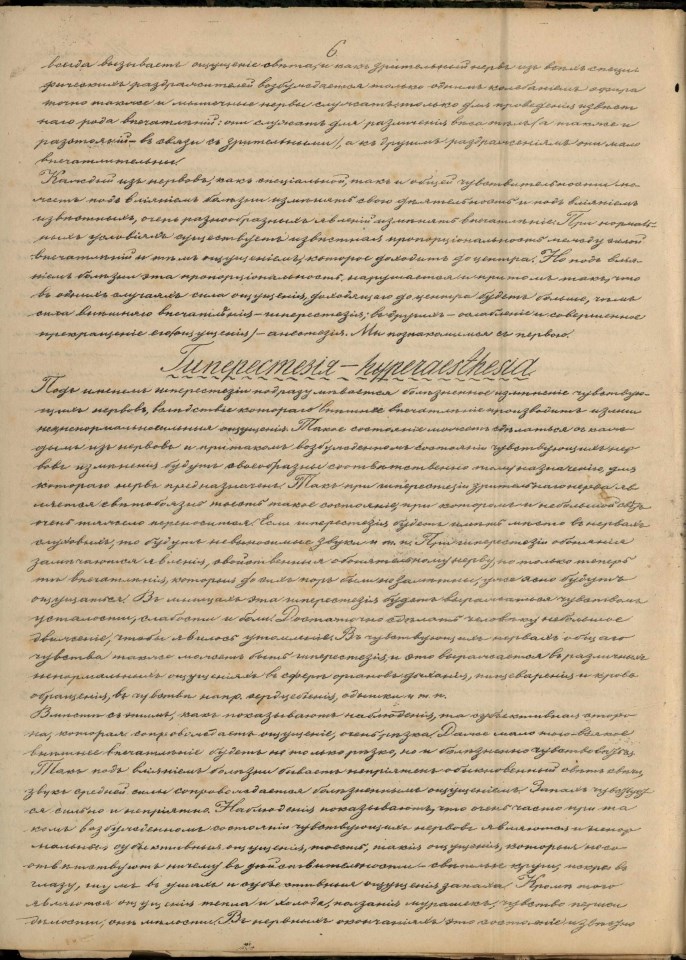 6
всегда вызываетъ ощущеніе свѣта, и какъ зрительный нервъ изъ всѣхъ специ
фическихъ раздражителей возбуждается только однимъ колебаніемъ эфира
точно также и мышечные нервы служатъ только для проведенія извѣст
наго рода впечатлѣній: они служатъ для различенія вѣса тѣлъ (а также и
разстояній – въ связи съ зрительными), а къ другимъ раздраженіямъ они мало
впечатлительны.
Каждый изъ нервовъ, какъ спеціальной, такъ и общей чувствительности мо
жетъ подъ вліяніемъ болѣзни измѣнять свою дѣятельность и подъ вліяніемъ
извѣстныхъ, очень разнообразныхъ явленій измѣнять впечатлѣніе. При нормаль-
ныхъ условіяхъ существуетъ извѣстная пропорціональность между силой
впечатлѣній и тѣмъ ощущеніемъ, которое доходитъ до центра. Но подъ влія-
ніемъ болѣзни эта пропорціональность нарушается и притомъ такъ, что
въ однихъ случаяхъ сила ощущенія, доходящаго до центра будетъ больше, чѣмъ
сила внѣшняго впечатлѣнія – гиперестезія; въ другихъ – ослабленіе и совершенное
прекращеніе его (ощущенія) – анестезія. Мы познакомимся съ первою.
Гиперестезія – hyperaesthesia
Подъ именемъ гиперестезіи подразумѣвается болѣзненное измѣненіе чувствую-
щихъ нервовъ, вслѣдствіе котораго внѣшнее впечатлѣніе производитъ въ нихъ
ненормально сильныя ощущенія. Такое состояніе можетъ сдѣлаться въ каж
домъ изъ нервовъ и при такомъ возбужденномъ состояніи чувствующихъ нер
вовъ измѣненія будутъ своеобразны соотвѣтственно тому назначенію, для
котораго нервъ предназначенъ. Такъ при гиперестезіи зрительнаго нерва яв
ляется свѣтобоязнь то есть такое состояніе, при которомъ и небольшой свѣтъ
очень тяжело переносится. Если гиперестезія будетъ имѣть мѣсто въ нервахъ
слуховыхъ, то будутъ невыносимые звуки и т. п. При гиперестезіи обонянія
замѣчаются явленія, свойственныя обонятельному нерву, но только теперь
тѣ впечатлѣнія, которыя до сихъ поръ были незамѣтны, уже ясно будутъ
ощущаться. Въ мышцахъ эта гиперестезія будетъ выражаться чувствомъ
усталости, слабости и боли. Достаточно сдѣлать человѣку небольшое
движеніе, чтобы явилось утомленіе. Въ чувствующихъ нервахъ общаго
чувства также можетъ быть гиперестезія, и это выражается въ различныхъ
ненормальныхъ ощущеніяхъ въ сферѣ органовъ дыханія, пищеваренія и крово
обращенія, въ чувствѣ напр. сердцебіенія, одышки и т. п.
Вмѣстѣ съ нимъ, какъ показываютъ наблюденія, та субъективная сторо
на, которая сопровождаетъ ощущеніе, очень рѣзка. Да, мало того всякое
внѣшнее впечатлѣніе будетъ не только рѣзко, но и болѣзненно чувствоваться.
Такъ подъ вліяніемъ болѣзни бываетъ непріятенъ обыкновенный свѣтъ свѣчи,
звукъ средней силы сопровождается болѣзненнымъ ощущеніемъ. Запахъ чувствует
ся сильно и непріятно. Наблюденія показываютъ, что очень часто при та
комъ возбужденномъ состояніи чувствующихъ нервовъ являются и ненор
мальныя субъективныя ощущенія, то есть, такія ощущенія, которыя не со
отвѣтствуютъ ничему въ дѣйствительности – свѣтлые круги, искры въ
глазу, шумъ въ ушахъ и субъективныя ощущенія запаха. Кромѣ того
являются ощущенія тепла и холода, ползанія мурашекъ, чувство
онѣмѣлости. Въ нервныхъ окончаніяхъ это состояніе